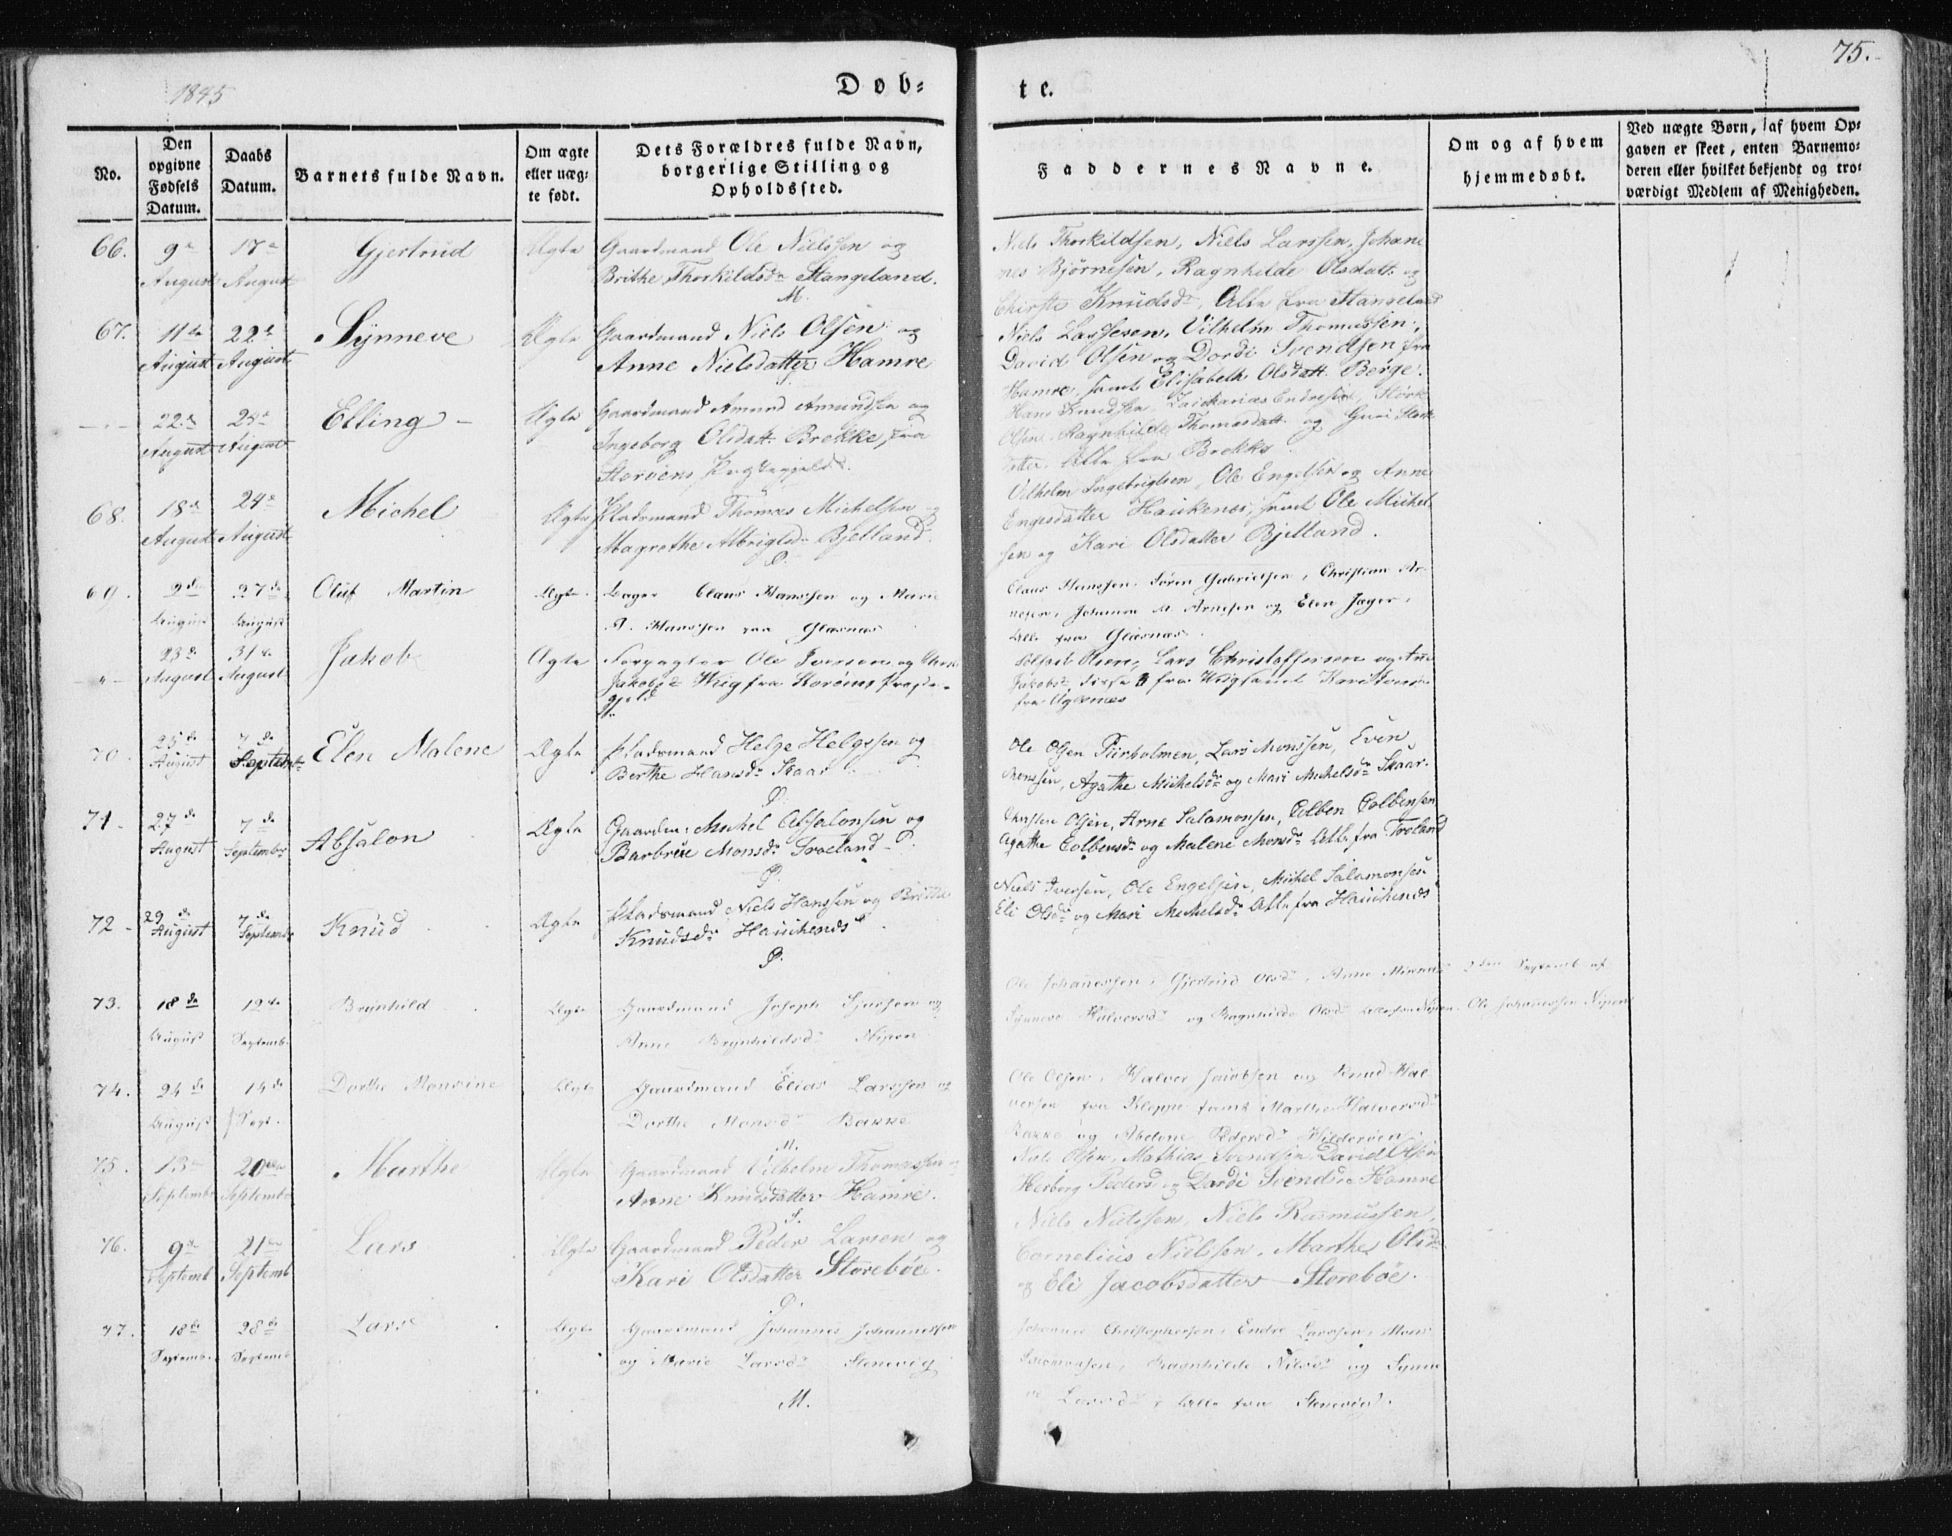 1845
Döb=
te.
75.
No.
Den opgivne Fødsels Datum.
Daabs Datum.
Barnets fulde Navn.
Om ægte eller uæg-te født.
Dets Forældres fulde Navn, borgerlige Stilling og Opholdssted.
Faddernes Navne.
Om og af hvem hjemmedøbt.
Ved uægte Børn, af hvem Op-gaven er skeet, enten Barnemo-deren eller hvilket bekjendt og tro-værdigt Medlem af Menigheden.
66. 9de August 17de August Gjertrud Ægte
Gaardmand Ole Nielssen og
Brithe Thorkildsdr Stangeland.
M.
Niels Thorkildsen, Niels Larssen, Johan-
nes Bjørnesen, Ragnhilde Olsdatt. og
Christe Knudsdr, Alle fra Stangeland
67. 11te August 22de August Synneve Ægte
Gaardmand Niels Olsen og
Anne Nielsdatter Hamre
Niels Larssen, Vilhelm Thomassen,
David Olsen og Dordi Svendsen fra
Hamre, samt Elisabeth Olsdatt. Berge.
22de August 24de August Elling Ægte
Gaardmand Amund Amundsen og
Ingeborg Olsdatt. Brekke, fra
Storøens Præstegjeld.
Hans Knudsen, Endresen, Størk
Olsen, Ragnhilde Thomasdatt. og Guri
Alle fra Brekke.
68. 18de August 24de August Michel Ægte
Pladsmand Thomas Michelsen og
Magrethe Albrigtsdr Bjelland.
P.
Vilhelm Ingebrigtsen, Ole Engelsen og Anne
Engesdatter Haukenæs, samt Ole Michel-
sen og Kari Olsdatter Bjelland.
69. 9de August 27de August Oluf Martin Ægte
Bager Claus Hanssen og Marie
A. Hanssen fra Glæsnæs
Claus Hanssen, Søren Gabrielsen, Christian Ar-
nesen, Johanna M. Arnesen og Elen Jæger,
Alle fra Glæsnæs.
23de August 31te August Jakob Ægte
Forpagter Ole Iversen og
Jakobsdr Wiig fra Storøens Præste-
gjeld
Olsen, Lars Christoffersen og Ane
Jakobsdr disse 3 fra Wiig samt Kari
fra
70. 25de August 7de Septembr Elen Malene Ægte
Pladsmand Helge Helgesen og
Berthe Hansdr Skaar
P.
Ole Olsen Furholmen, Lars Monssen, Even
Monssen, Agathe Mickelsdr og Mari Mickelsdr Skaar.
71. 27de August 7de September Absalon Ægte
Gaardm: Mickel Absalonsen og
Barbroe Monsdr Troeland
P.
Christen Olsen, Arne Salamonsen, Colben Colbensen
Agathe Colbensdr og Malene Monsdr Alle fra Troeland
72. 29de August 7de Septembr Knud Ægte
Pladsmand Niels Hanssen og Brithe
Knudsdr Hauckenæs
P.
Niels Iversen, Ole Engelsen, Mickel Salamonsen
Eli Olsdr og Mari Mickelsdr Alle fra Hauckenæs
73. 18de August 12te Septemb. Brynhild Ægte
Gaardmand Joseph Sjursen og
Anne Brynhildsdr Nipen
Ole Johannessen, Gjertrud Olsdr, Anne
Synneve Halvorsdr og Ragnhilde Olsdr Alle fra Nipen.
2den Septemb af
Ole Johannessen Nipen
74. 24de August 14de Sept. Dorthe Monsine Ægte
Gaardmand Elias Larssen og
Dorthe Monsdr Bakke
M.
Ole Olsen, Halvor Jacobsen og Knud Hal-
vorsen fra Kleppe samt Marthe Halvorsdr
Bakke og Abelone Pedersdr Hilderøen.
75. 13de Septembr 20de Septembr Marthe Ægte
Gaardmand Vilhelm Thomassen og
Anne Knudsdatter Hamre.
P.
Niels Olsen, Mathias Svendsen, David Olsen
Herborg Peders og Dordi Svendsdr Hamre
76. 9de Septemb 21de Septemb Lars Ægte
Gaardmand Peder Larsen og
Kari Olsdatter Storebøe.
P.
Niels Nielssen, Niels Rasmussen,
Cornelius Nielssen, Marthe Olsdr
og Eli Jacobsdatter Storebøe.
77. 18de Septemb. 28de Septemb Lars Ægte
Gaardmand Johannes Johannessen
og Marie Larsdr Stenevig
M.
Johannes Christophersen, Endre Larssen, Mons
Salomonsen, Ragnhilde Nilsdr og Synne-
ve Larsdr, Alle fra Stenevig.